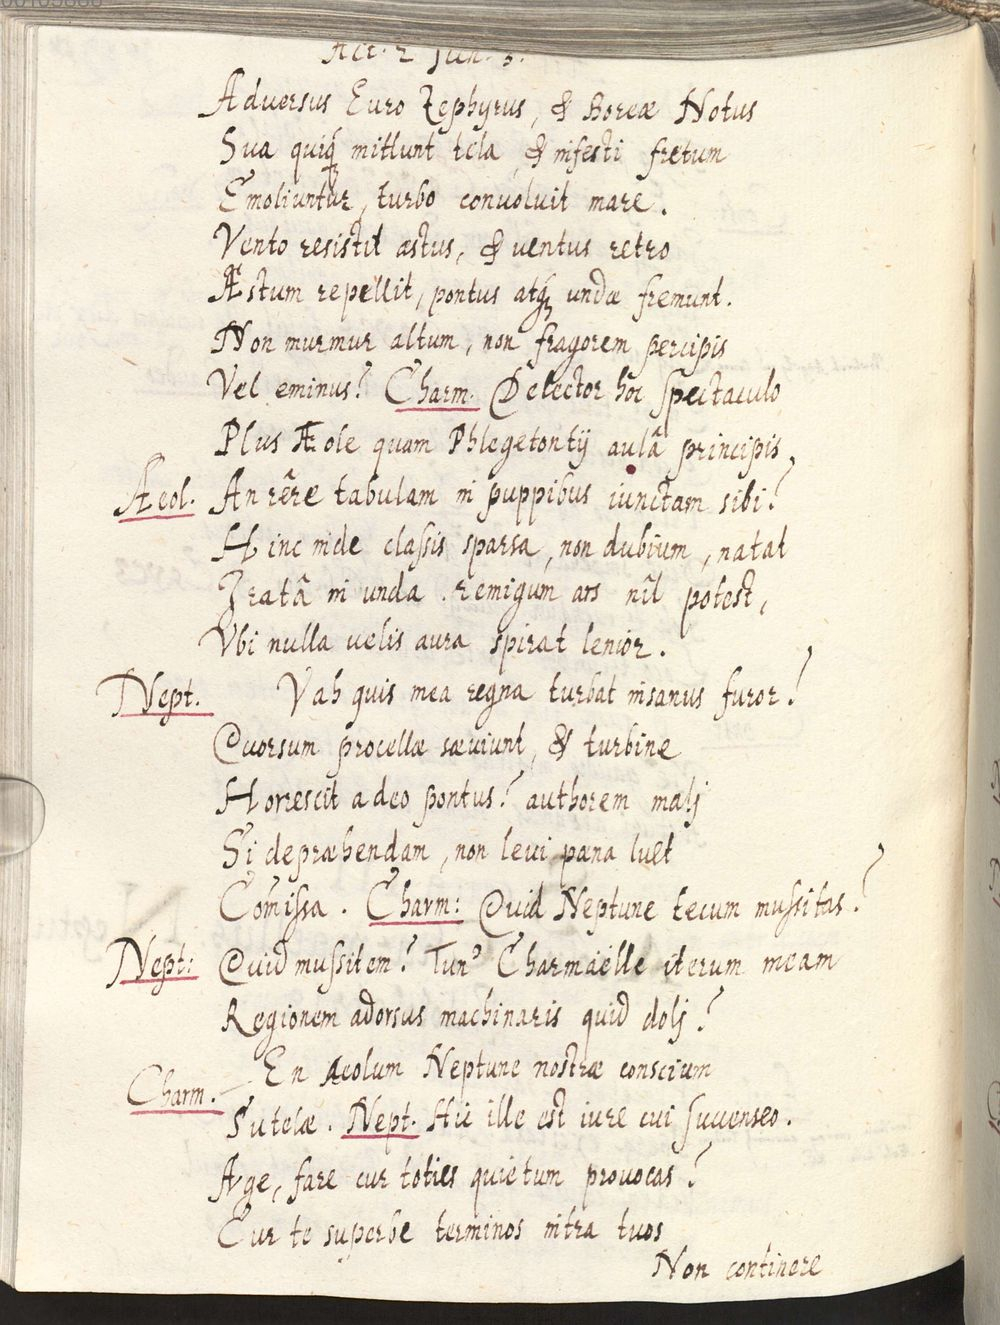 Act. 2 Scen. 3.
Aduersus Euro Zephyrus, & Boreæ Notus
Sua quiq₃ mittunt tela, & infesti fretum
Emoliuntur, turbo conuoluit mare.
Vento resistit æstus, & ventus retro
Æstum repellit, pontus atq₃ undæ fremunt.
Non murmur altum, non fragorem percipis
Vel eminus? Charm. Delector hoc spectaculo
Plus Æole quam Phlegetontij aulâ principis.
Aeol. An rêre tabulam in puppibus iunctam sibi?
Hinc inde classis sparsa, non dubium, natat
Iratâ in unda. remigum ars nîl potest,
Vbi nulla velis aura spirat lenior.
Nept. Vah quis mea regna turbat insanus furor!
Quorsum procellæ sæuiunt, & turbine
Horrescit adeo pontus? authorem malj
Si depræhendam, non leui pæna luet
Com̃issa. Charm: Quid Neptune tecum mussitas?
Nept: Quid mussitem? Tun' Charmäelle iterum meam
Regionem adorsus machinaris quid dolj?
Charm. En Aeolum Neptune nostræ conscium
Sutelæ. Nept. Hic ille est iure cui succenseo.
Age, fare cur toties quietum prouocas?
Cur te superbe terminos intra tuos
Non continere